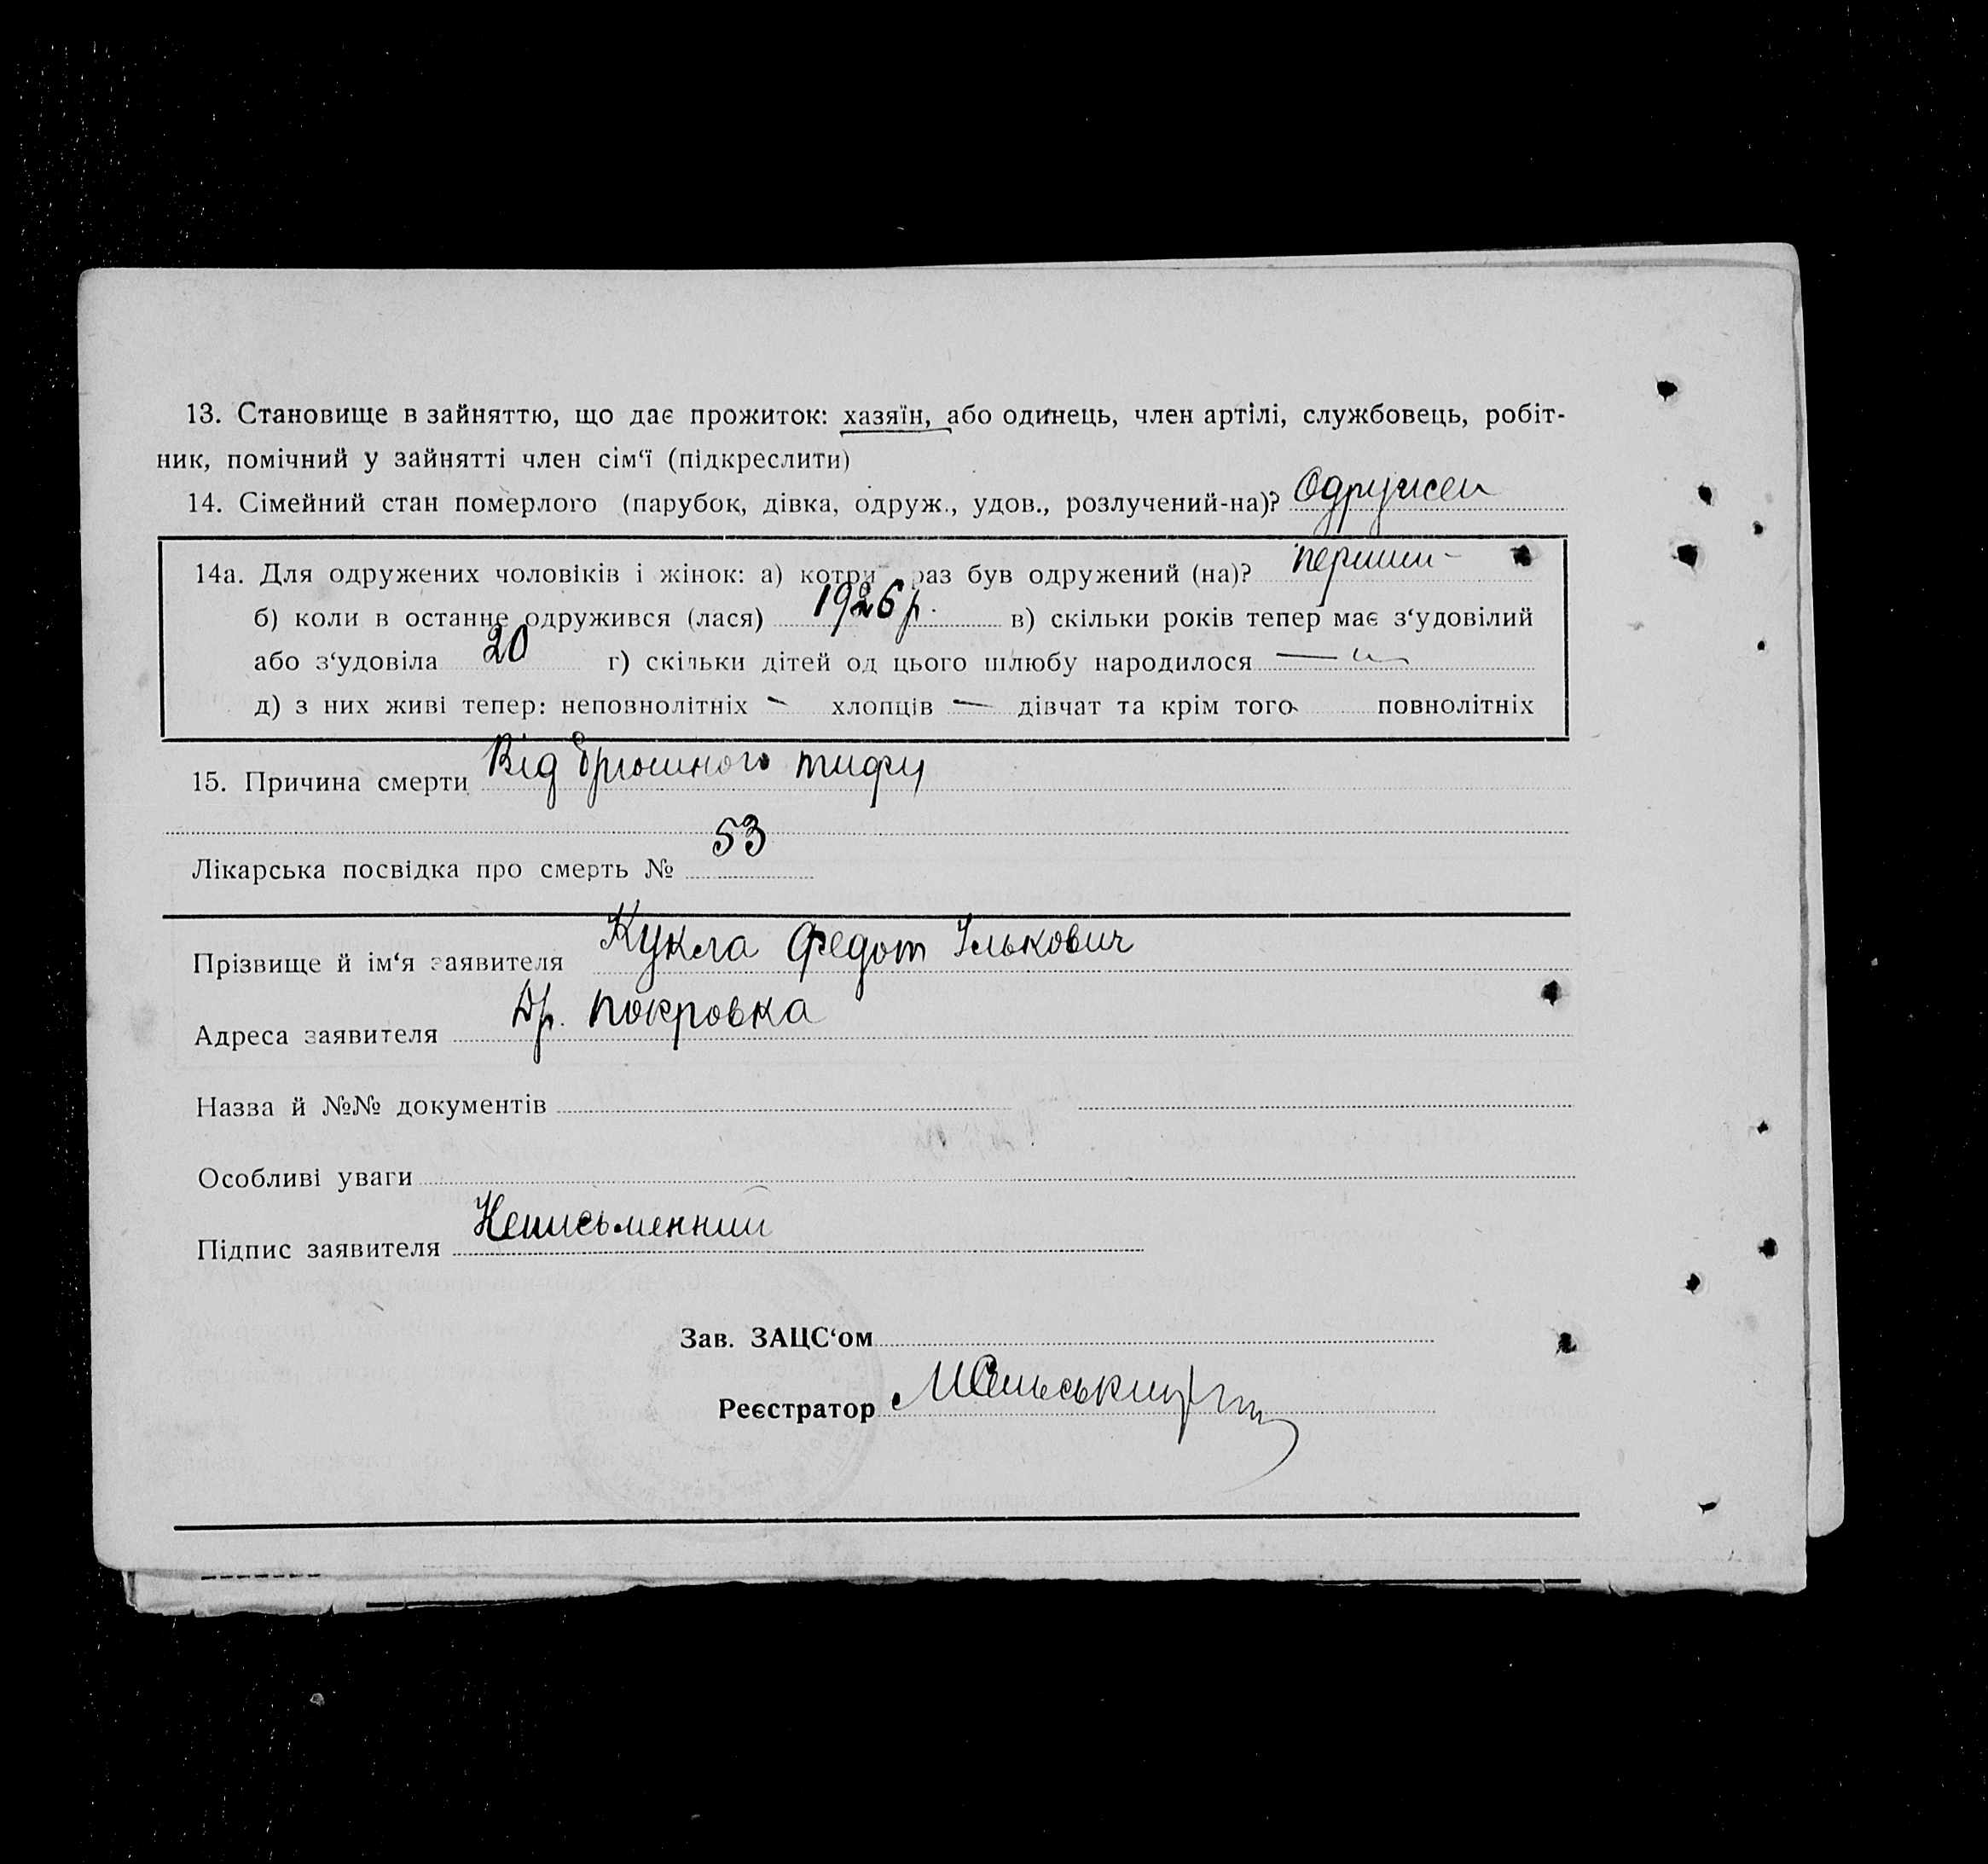 13. Становище в зайняттю, що дає прожиток: хазяїн, або одинець, член артілі, службовець, робіт-
ник, помічний у зайнятті член сім‘ї (підкреслити)
14. Сімейний стан померлого (парубок, дівка, одруж., удов., розлучений-на)? Одружен
14а. Для одружених чоловіків і жінок: а) котри раз був одружений (на)? перший
б) коли в останне одружився (лася) 1926 р. в) скільки років тепер має з‘удовілий
або з‘удовіла 20 г) скільки дітей од цього шлюбу народилося —
д) з них живі тепер: неповнолітніх — хлопців — дівчат та крім того повнолітніх
15. Причина смерти Від брюшного тифу
Лікарська посвідка про смерть № 53
Прізвище й ім‘я заявителя Кукла Федот Ількович
Адреса заявителя Др. Покровка
Назва й №№ документів
Особливі уваги
Підпис заявителя Неписьменний
Зав. ЗАЦС‘ом
Реєстратор